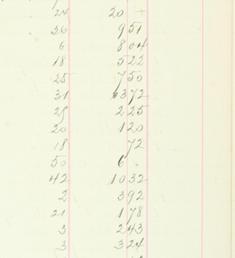 24 20 -
36 9 51
6 8 04
18 5 22
25 7 50
31 6372
25 2 25
20 1 20
18 72
50 6 -
42 10 32
2 3 92
21 1 78
3 2 43
3 3 24